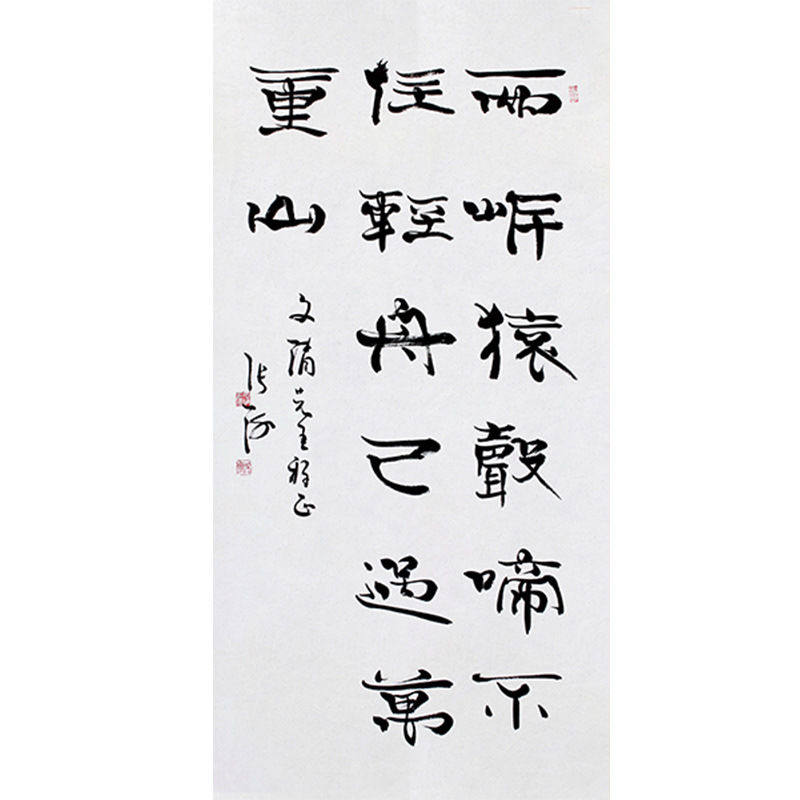 兩岍猿聲啼不
住輕舟已過萬
重山
文清先生雅正